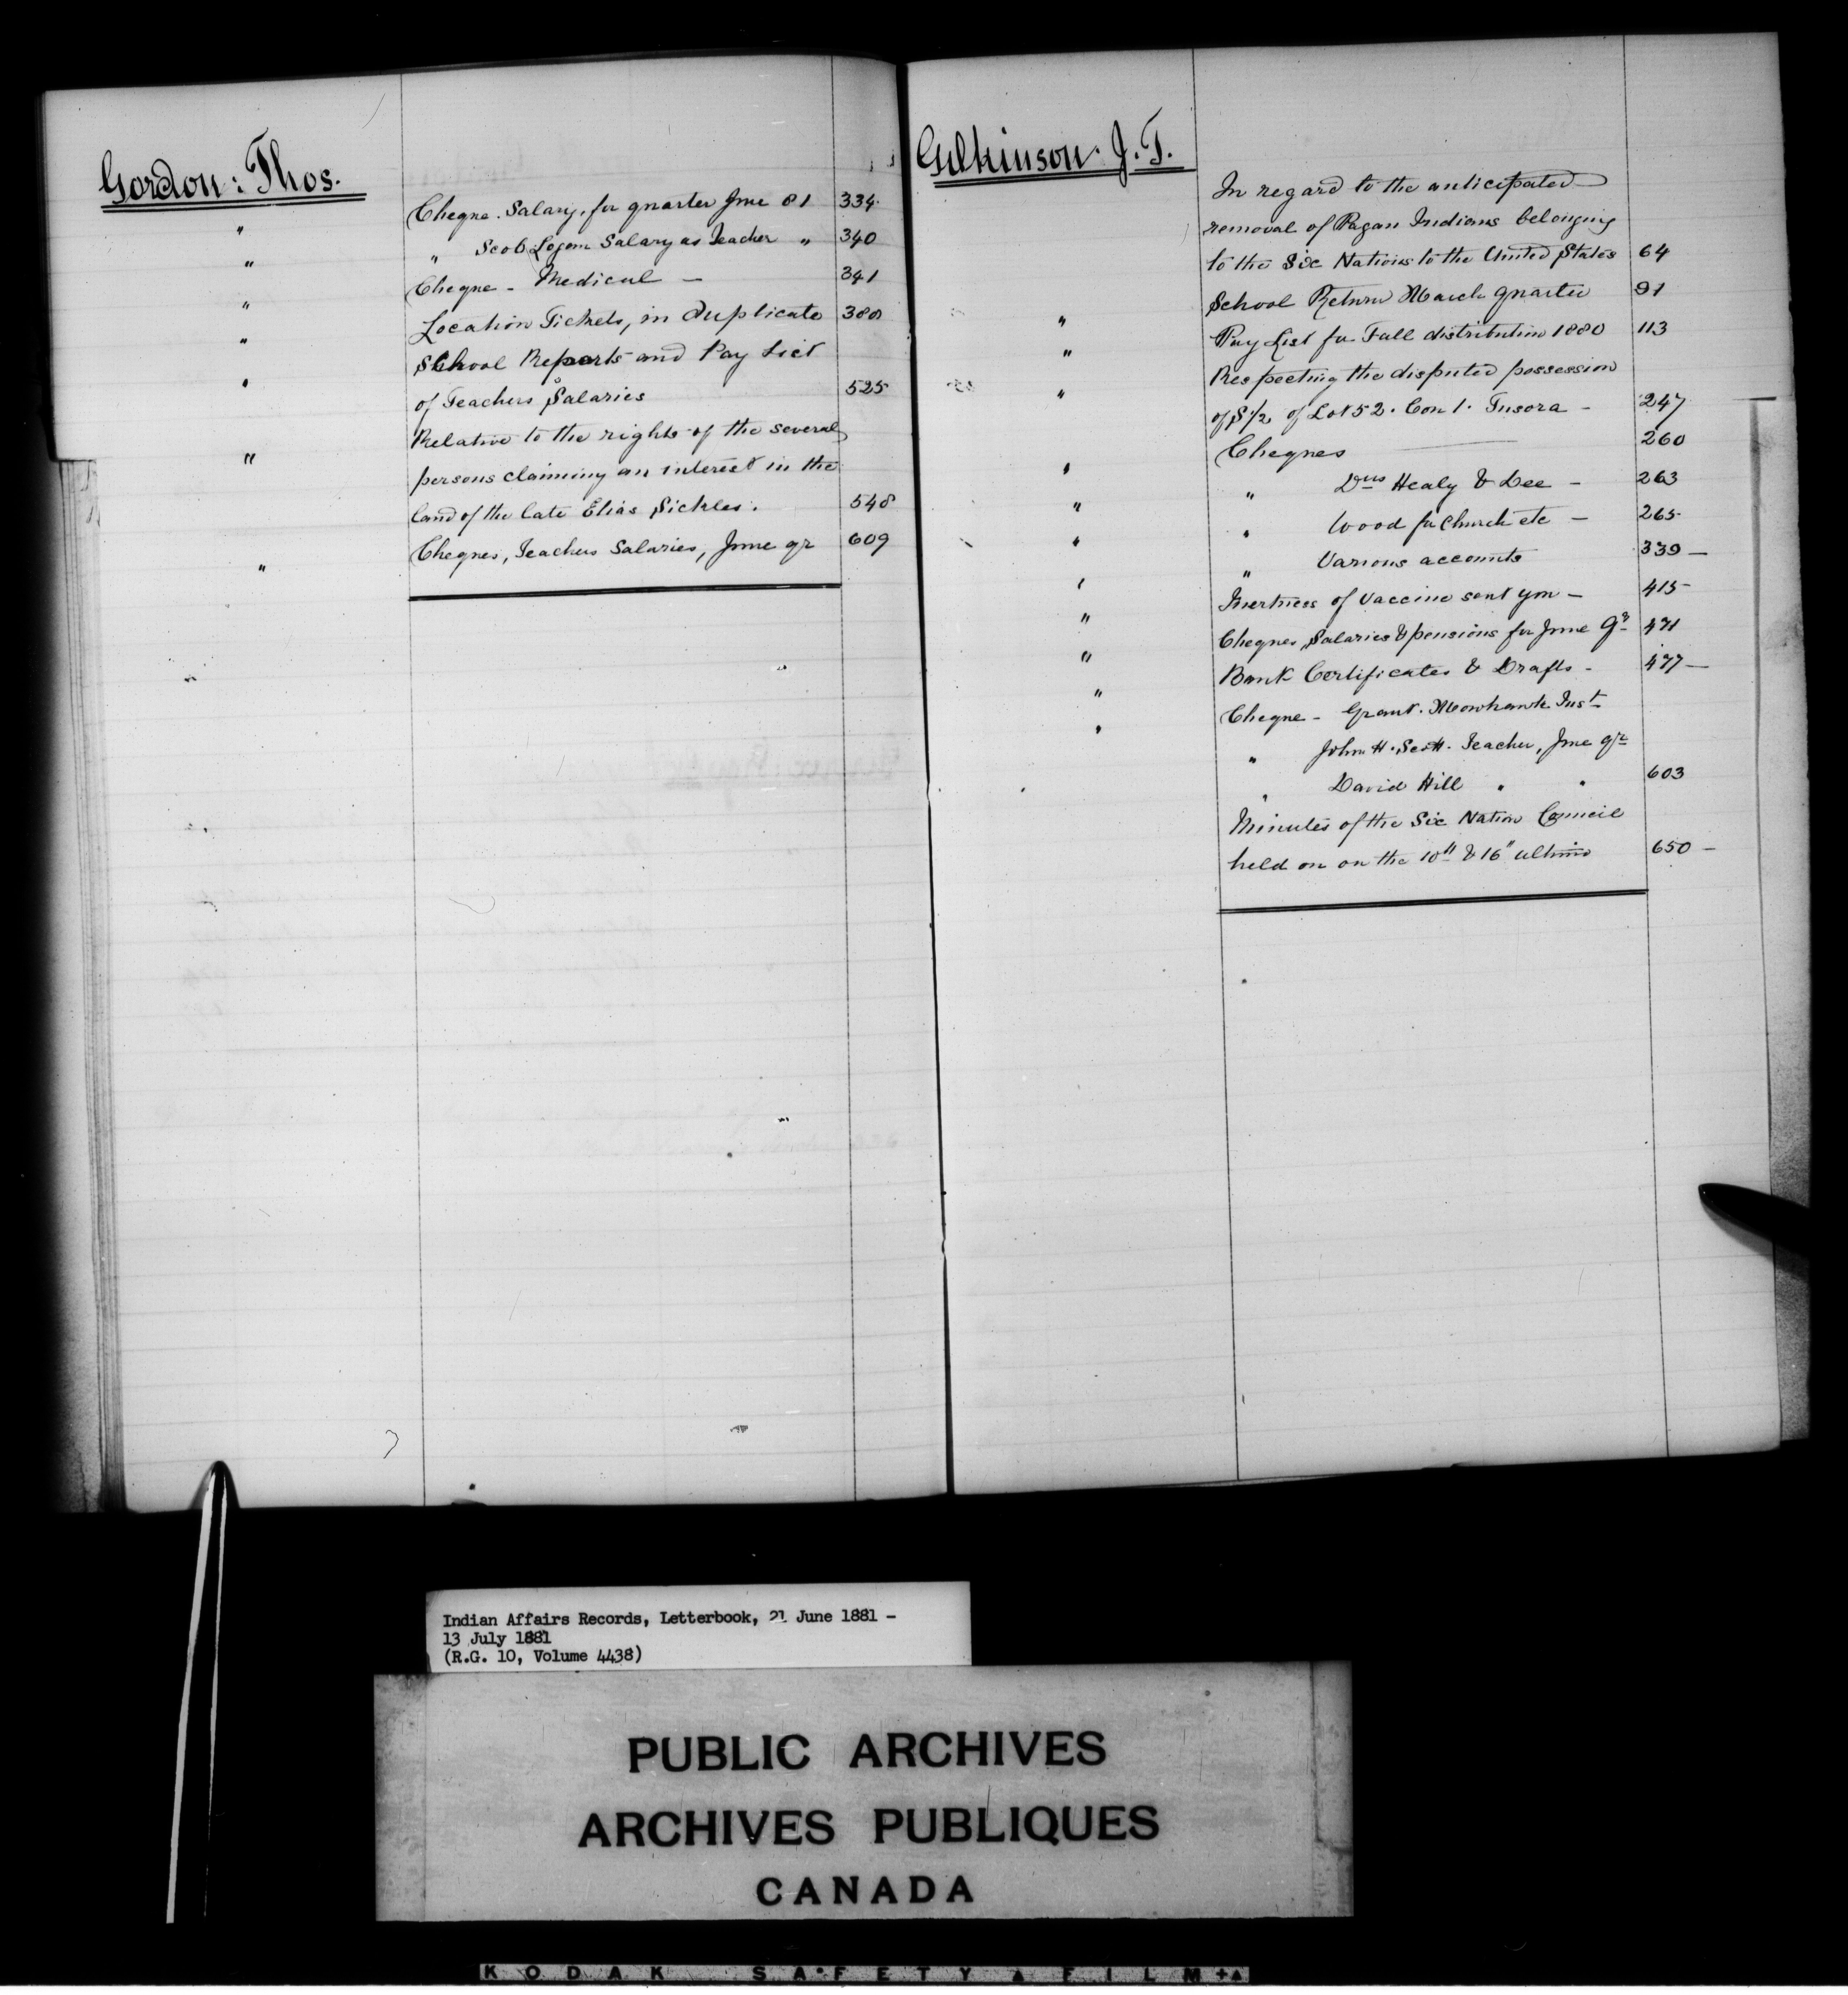 Gordon: Thos.
Cheque. Salary, for quarter June 81 334
" " Scob Logan Salary as Teacher " 340
" Cheque - Medical - 341
" Location Tickets, in Duplicate 380
" School Reports and Pay List
" of Teachers Salaries 525
Relative to the rights of the several
" persons claiming an interest in the
land of the late Elias Sickles. 548
Cheques, Teachers Salaries, June qr 609
"
Gilkinson. J. T.
In regard to the anticipated
removal of Pagan Indians belonging
to the Six Nations to the United States 64
School Return March quarter 91
" Pay List for Fall distribution 1880 113
" Respecting the disputed possession
" of S½ of Lot 52. Con 1. Tusora - 247
Cheques 260
" " Drs Healy & Dee - 263
" " Wood for Church etc - 265
" " Various accounts 339 -
" Inertness of Vaccine sent you - 415 -
" Cheques, Salaries & pensions for June Qr 471
" Bank Certificates & Drafts - 477 -
" Cheque - Grant. Mowhawk Inst
" " John H. Scott. Teacher, June qr
" David Hill " " 603
Minutes of the Six Nation Council
held on on the 10th & 16" ultimo 650 -
Indian Affairs Records, Letterbook, 21 June 1881 -
13 July 1881
(R.G. 10, Volume 4438)
PUBLIC ARCHIVES
ARCHIVES PUBLIQUES
CANADA
KODAK SAFETY FILM